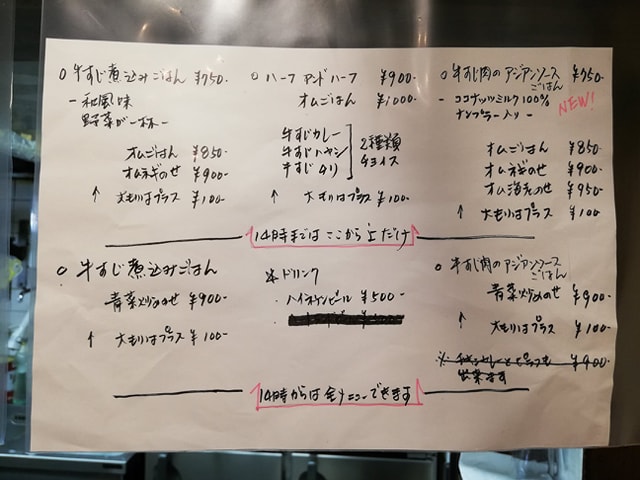 ○ 牛すじ煮込みごはん ¥750-
- 和風味
野菜が一杯-
オムごはん ¥850
オムネギのせ ¥900
↑ 大もりはプラス ¥100-
○ ハーフ アンド ハーフ ¥900-
オムごはん ¥1000-
牛すじカレー
牛すじハヤシ
牛すじ
2種類
チョイス
↑ 大もりはプラス ¥100-
○ 牛すじ肉のアジアンソース
ごはん ¥750-
- ココナッツミルク100%
ナンプラー入り-
NEW!
オムごはん ¥850-
オムネギのせ ¥900-
オム のせ ¥950
↑ 大もりはプラス ¥100
14時まではここから上だけ
○ 牛すじ煮込みごはん
青菜炒めのせ ¥900-
↑ 大もりはプラス ¥100-
ドリンク
・ハイネケンビール ¥500-
○ 牛すじ肉のアジアンソース
ごはん
青菜炒めのせ ¥900-
↑ 大もりはプラス ¥100-
※ ¥900
出来ます
14時からは全メニューできます